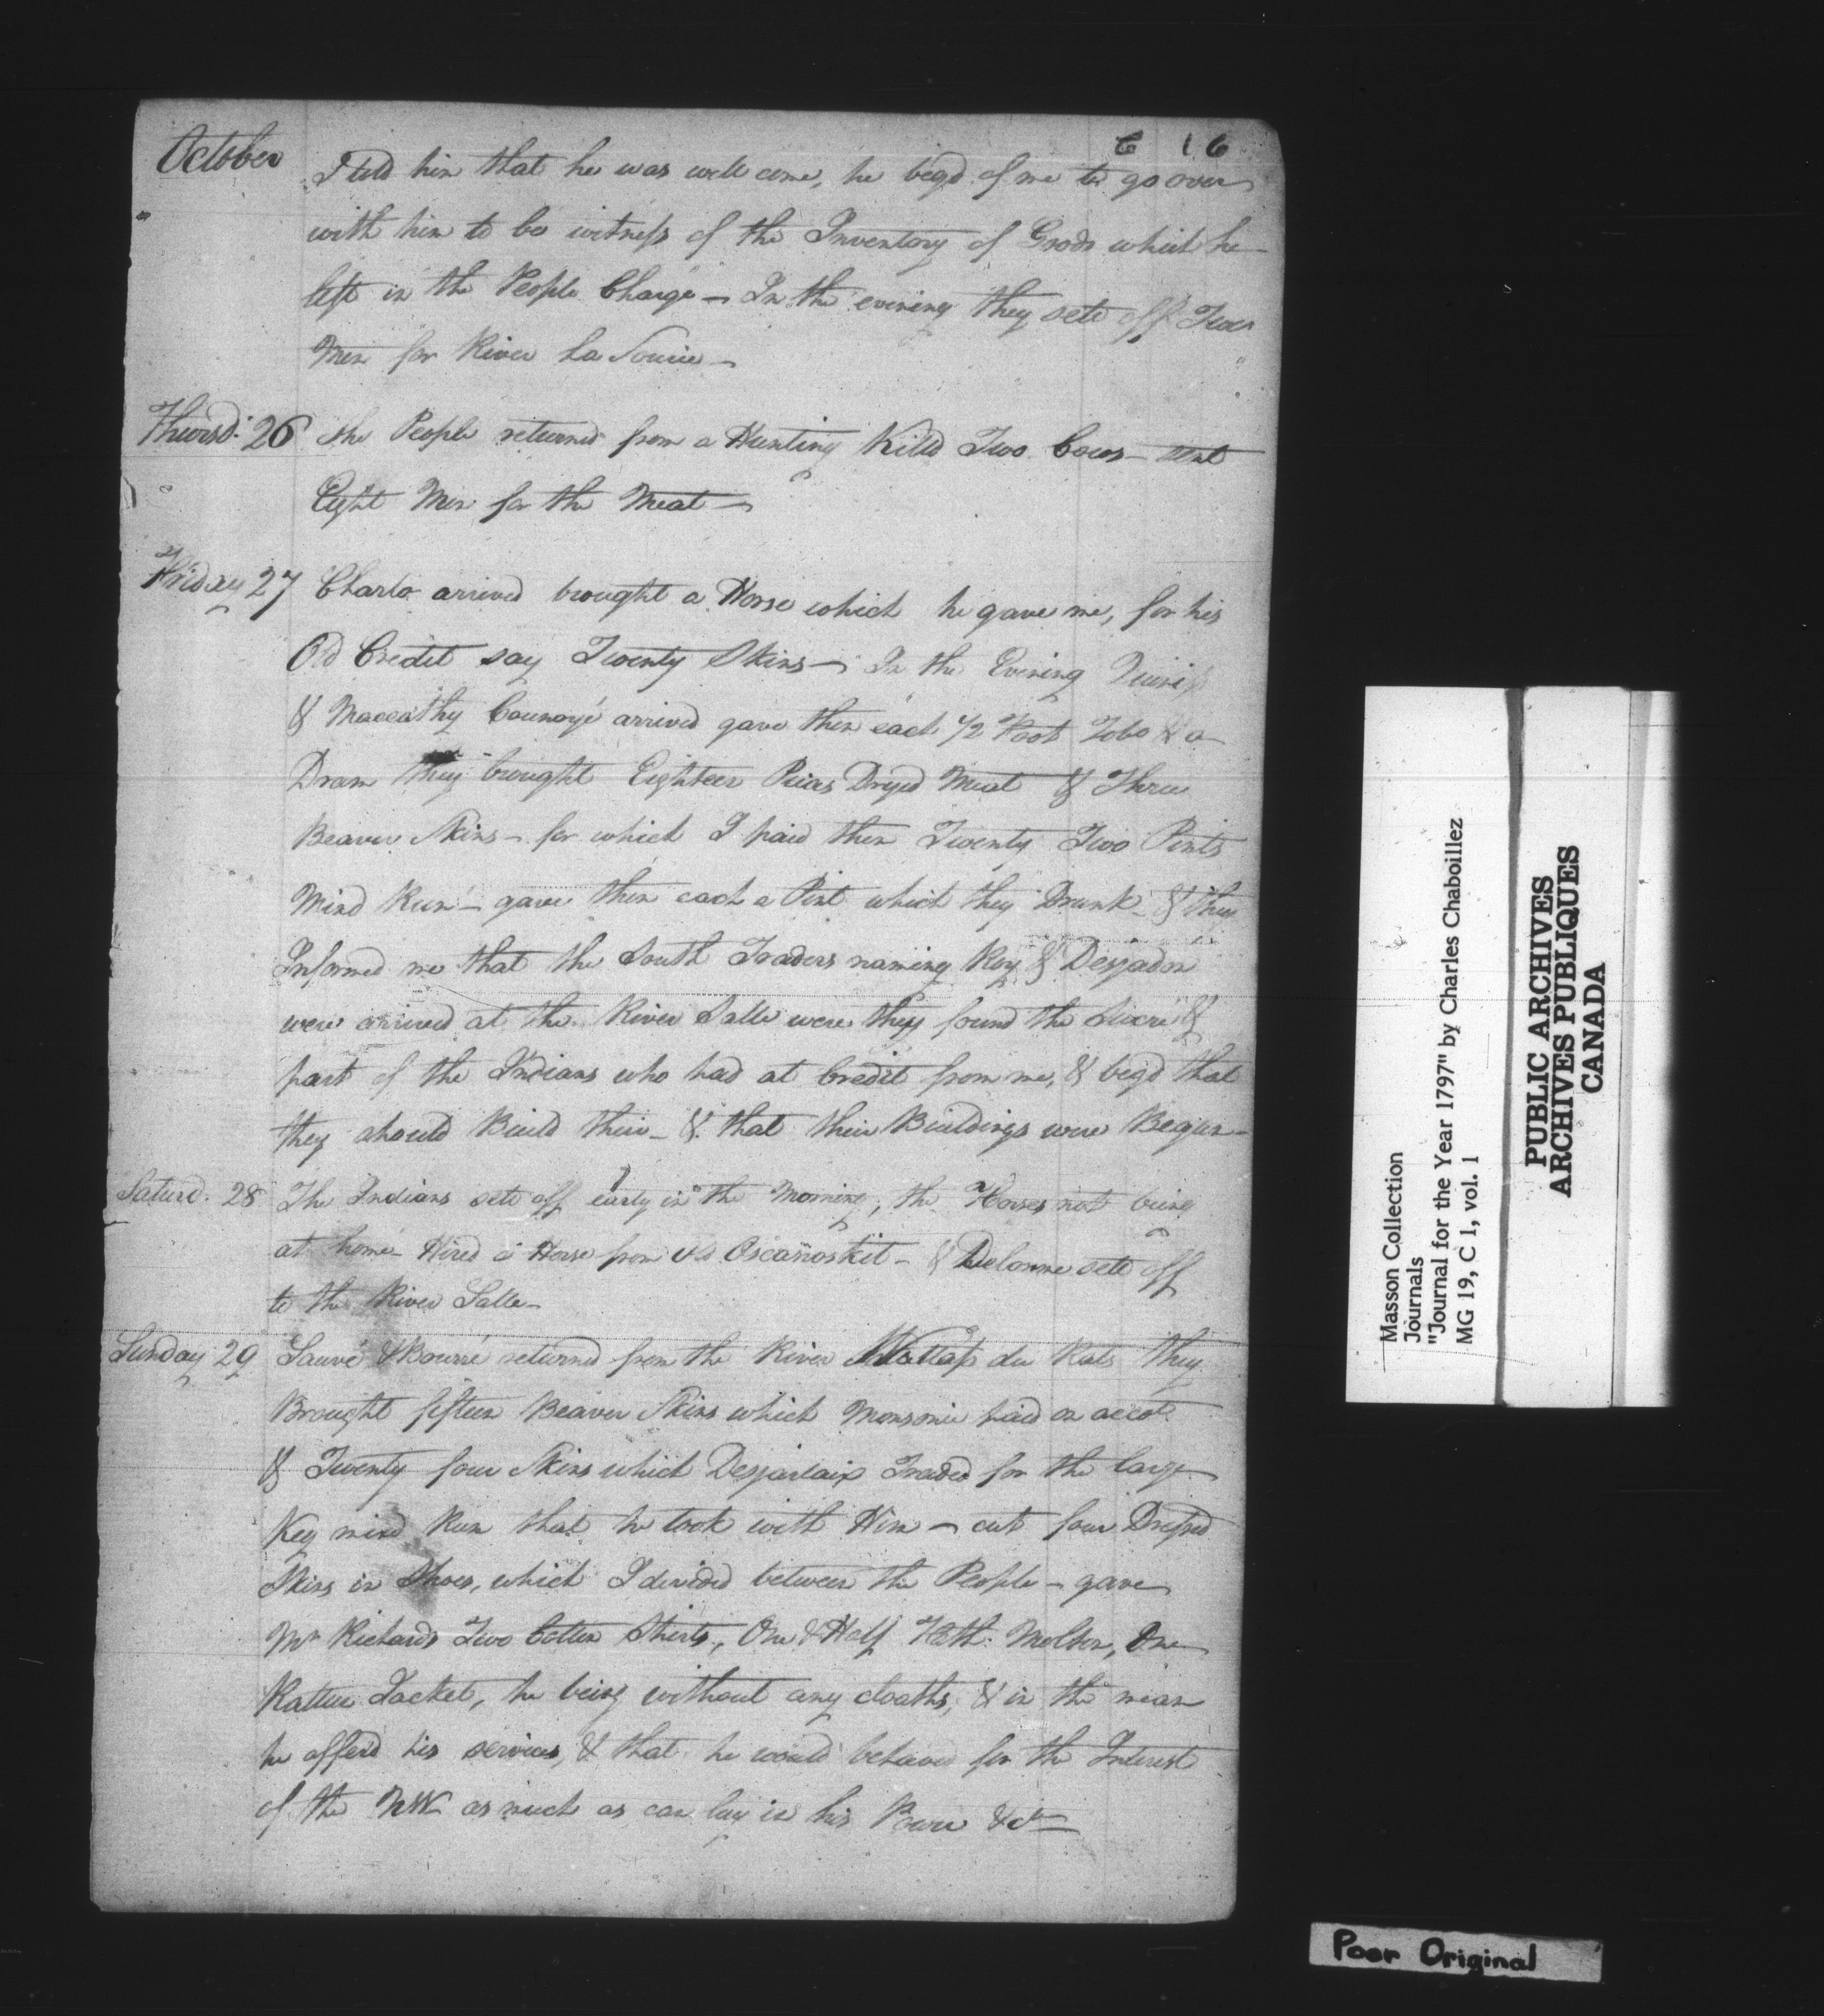 October
6 16
I told him that he was well come, he beg'd of me to go over
with him to be witness of the Inventory of Goods which he
left in the People Charge – In the evening they sett off Two
Men for River La Sourie –
Thursd. 26 the People returned from a Hunting Killd Two Cows – sent
Eight Men for the Meat –
Friday 27 Charlo arrived brought a Horse which he gave me, for his
Old Credit say Twenty Skins – In the Evening
& Maccathy Counoyé arrived gave them each 1/2 Foot Tobo & a
Dram they brought Eighteen Peices Dryed Meat & Three
Beaver Skins – for which I paid them Twenty Two Pints
Mixd Rum – gave them each a Pint which they Drunk – & they
Informed me that the South Traders naming Roy & Desjadon
were arrived at the River Salle were they found the Sucré &
part of the Indians who had at Credit from me, & beg'd that
they should Build their – & that their Buildings were Begun –
Saturd. 28 The Indians sett off early in the Morning, the Horses not being
at home – Hired a Horse from Old Oscanoskit – & Delorme sett off
to the River Salle –
Sunday 29 Sauvé & Bourré returned from the River Wattap du Rats they
Brought fifteen Beaver Skins which Monsonie paid on accot.
& Twenty four Skins which Desjarlaix Traded for the large
Keg mixd Rum that he took with Him – cut four Dressed
Skins in Shoes, which I divided between the People – gave
Mr Richards Two Cotton Shirts, One & Half Fath: Molton, One
Rattun Jacket, he being without any cloaths, & in the mean
he offer'd his services, & that he would behave for the Interest
of the NW as much as can lay in his Power &c –
Masson Collection
Journals
"Journal for the Year 1797" by Charles Chaboillez
MG 19, C 1, vol. 1
PUBLIC ARCHIVES
ARCHIVES PUBLIQUES
CANADA
Poor Original